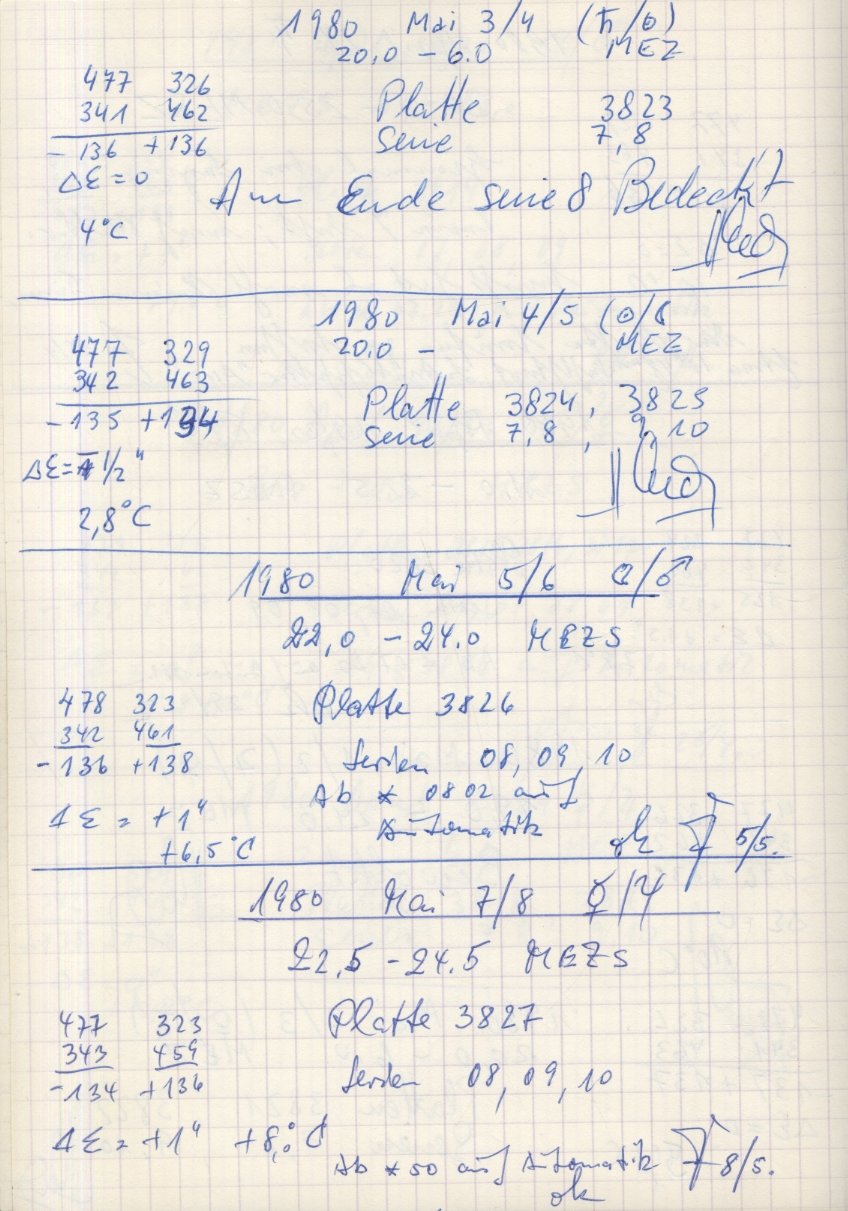 1980 Mai 3/4 (♄/☉)
20,0 – 6.0 MEZ
477 326
341 462
-136 +136
Platte 3823
Serie 7,8
Δε = 0
Am Ende Serie 8 Bedeckt
4°C
1980 Mai 4/5 (☉/☾
20.0 – MEZ
477 329
342 463
-135 +134
Platte 3824, 3825
Serie 7,8, 9, 10
Δε = 1/2"
2,8°C
1980 Mai 5/6 ☾/♂
22,0 – 24.0 MEZS
478 323
342 461
-136 +138
Platte 3826
Serien 08, 09, 10
Ab * 0802 auf
Automatik
Δε = +1"
+6,5°C
ok 5/5.
1980 Mai 7/8 ☿/♃
22,5 – 24.5 MEZS
477 323
343 459
-134 +136
Platte 3827
Serien 08, 09, 10
Δε = +1" +8,°C
Ab * 50 auf Automatik 8/5.
ok